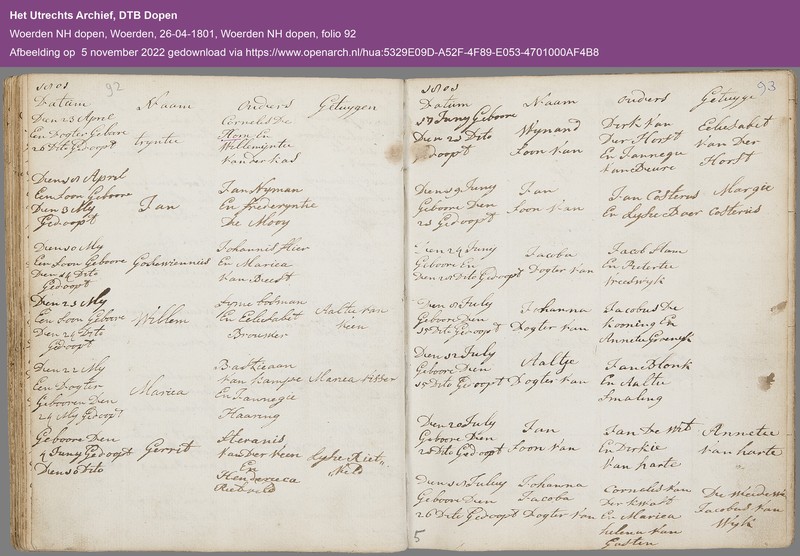 Het Utrechts Archief, DTB Dopen
Woerden NH dopen, Woerden, 26-04-1801, Woerden NH dopen, folio 92
Afbeelding op 5 november 2022 gedownload via https://www.openarch.nl/hua:5329E09D-A52F-4F89-E053-4701000AF4B8
1801 92
Datum Naam Ouders Getuygen
Den 23 April Cornelis De
Een Dogter Gebore Hom En
26 Dito Gedoopt tryntie Willemyntie
Van der Kas
April
Een Soon Geboore Jan Nyman
Den 3 My Jan En Frederyntie
Gedoopt De Mooy
Den 10 My Johannis
Een Soon Geboore En Marica
Den 14 Dito Van
Gedoopt
Den 23 My
Een Soon Gebore Willem En Eelisabet Aaltie van
Den 24 Dito Brouwer Veen
Gedoopt
Den 22 My Bastiaaan
Een Dogter Van Kampe Marica Visser
Gebooren Den Marica En Jannegie
24 My Gedoopt Haaring
Geboore Den
4 Juny Gedoopt Gerrit Van Der Veen
En
Hendereca
1801 93
Datum Naam Ouders Getuyge
17 Juny Geboore Dirk Van Eelisabet
Den 21 Dito Wynand Der Horst Van Der
Gedoopt Soon Van En Jannegie Horst
Van Beure
Den 19 Juny Jan Jan Costerus Margie
Geboore Den Soon Van En Boer Costerus
Gedoopt
Den 24 Juny Jacoba Jacob Ham
Geboore En En Pietertie
Den 28 Dito Gedoopt Dogter Van Vreeswyk
July Johanna Jacobus De
Geboore Den Dogter Van Koning En
Dito Gedoopt Annetie
Den 12 July Aaltje Jan Blonk
Geboore Den En Aaltie
15 Dito Gedoopt Dogter Van Smaling
Den 20 July Jan Jan De Wit Annetie
Geboore Den En Dirkie Van Harte
Dito Gedoopt Soon Van Van Harte
Johanna Cornelis Van De Weduwe
Geboore Den Jacoba Jacobus Van
26 Dito Gedoopt Dogter Van En Marica Wyk
Helena Van
5